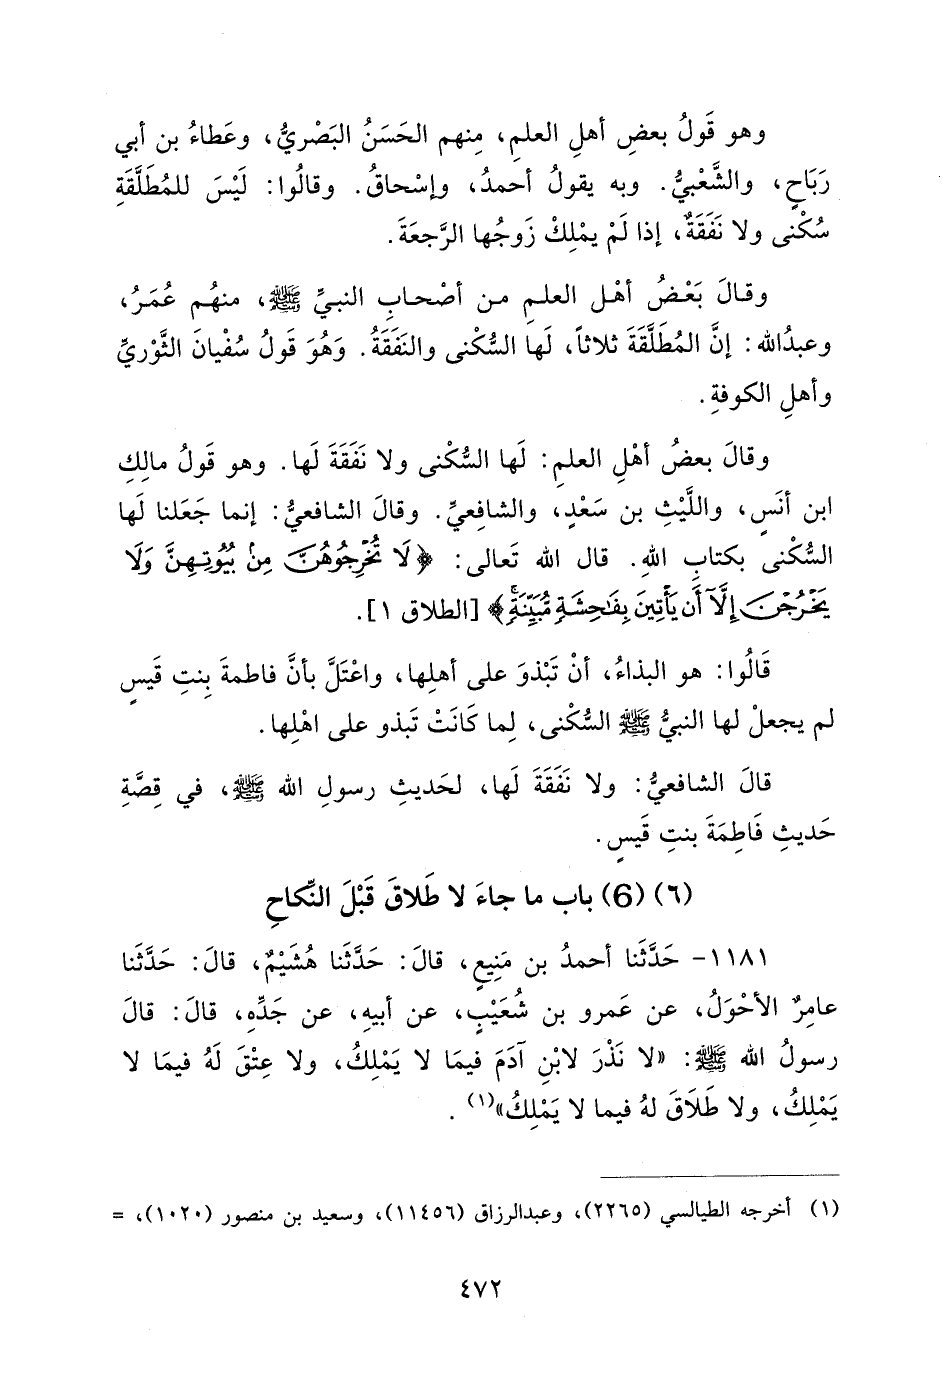 وهو قَولُ بعضِ أهلِ العلمِ، مِنهم الحَسَنُ البَصْريُّ، وعَطاءُ بن أبي
رَبَاحٍ، والشَّعْبيُّ. وبه يقولُ أحمدُ، وإسْحاقُ. وقالُوا: لَيْسَ للمُطَلَّقَةِ
سُكْنى ولا نَفَقَةٌ، إذا لَمْ يمْلِكْ زَوجُها الرَّجعَةَ.
وقالَ بَعْضُ أهْلِ العلمِ من أصْحابِ النبيِّ ﷺ، منهُم عُمَرُ،
وعبدُالله: إنَّ المُطَلَّقَةَ ثلاثاً، لَها السُّكْنى والنَفَقَةُ. وَهُوَ قَولُ سُفْيانَ الثَّوْريِّ
وأهلِ الكوفةِ.
وقالَ بعضُ أهْلِ العلمِ: لَها السُّكْنى ولا نَفَقَةَ لَها. وهو قَولُ مالِكِ
ابن أنَسٍ، واللَّيْثِ بن سَعْدٍ، والشافِعيِّ. وقالَ الشافعيُّ: إنما جَعَلنا لَها
السُّكْنى بكتابِ اللهِ. قال الله تَعالى: ﴿لَا تُخْرِجُوهُنَّ مِنْ بُيُوتِهِنَّ وَلَا
يَخْرُجْنَ إِلَّآ أَن يَأْتِينَ بِفَاحِشَةٍ مُّبَيِّنَةٍ﴾ [الطلاق ١].
قَالُوا: هو البذاءُ، أنْ تَبْذوَ على أهلِها، واعْتَلَّ بأنَّ فاطمةَ بِنتِ قَيسٍ
لم يجعلْ لها النبيُّ ﷺ السُّكْنى، لِما كَانَتْ تَبذو على اهْلِها.
قالَ الشافعيُّ: ولا نَفَقَةَ لَها، لحَديثِ رسولِ الله ﷺ، في قِصَّةِ
حَديثِ فَاطِمَةَ بنتِ قَيسٍ.
(٦) (6) باب ما جاءَ لا طَلاقَ قَبْلَ النِّكاحِ
١١٨١- حَدَّثَنا أحمدُ بن مَنِيعٍ، قالَ: حَدَّثَنا هُشَيْمٌ، قالَ: حَدَّثَنا
عامِرٌ الأحْوَلُ، عن عَمرو بن شُعَيْبٍ، عن أبيهِ، عن جَدِّهِ، قالَ: قالَ
رسولُ الله ﷺ: «لا نَذْرَ لابْنِ آدَمَ فيمَا لا يَمْلِكُ، ولا عِتْقَ لَهُ فيمَا لا
يَمْلِكُ، ولا طَلَاقَ لهُ فيما لا يَمْلِكُ»(١).
(١) أخرجه الطيالسي (٢٢٦٥)، وعبدالرزاق (١١٤٥٦)، وسعيد بن منصور (١٠٢٠)، =
٤٧٢